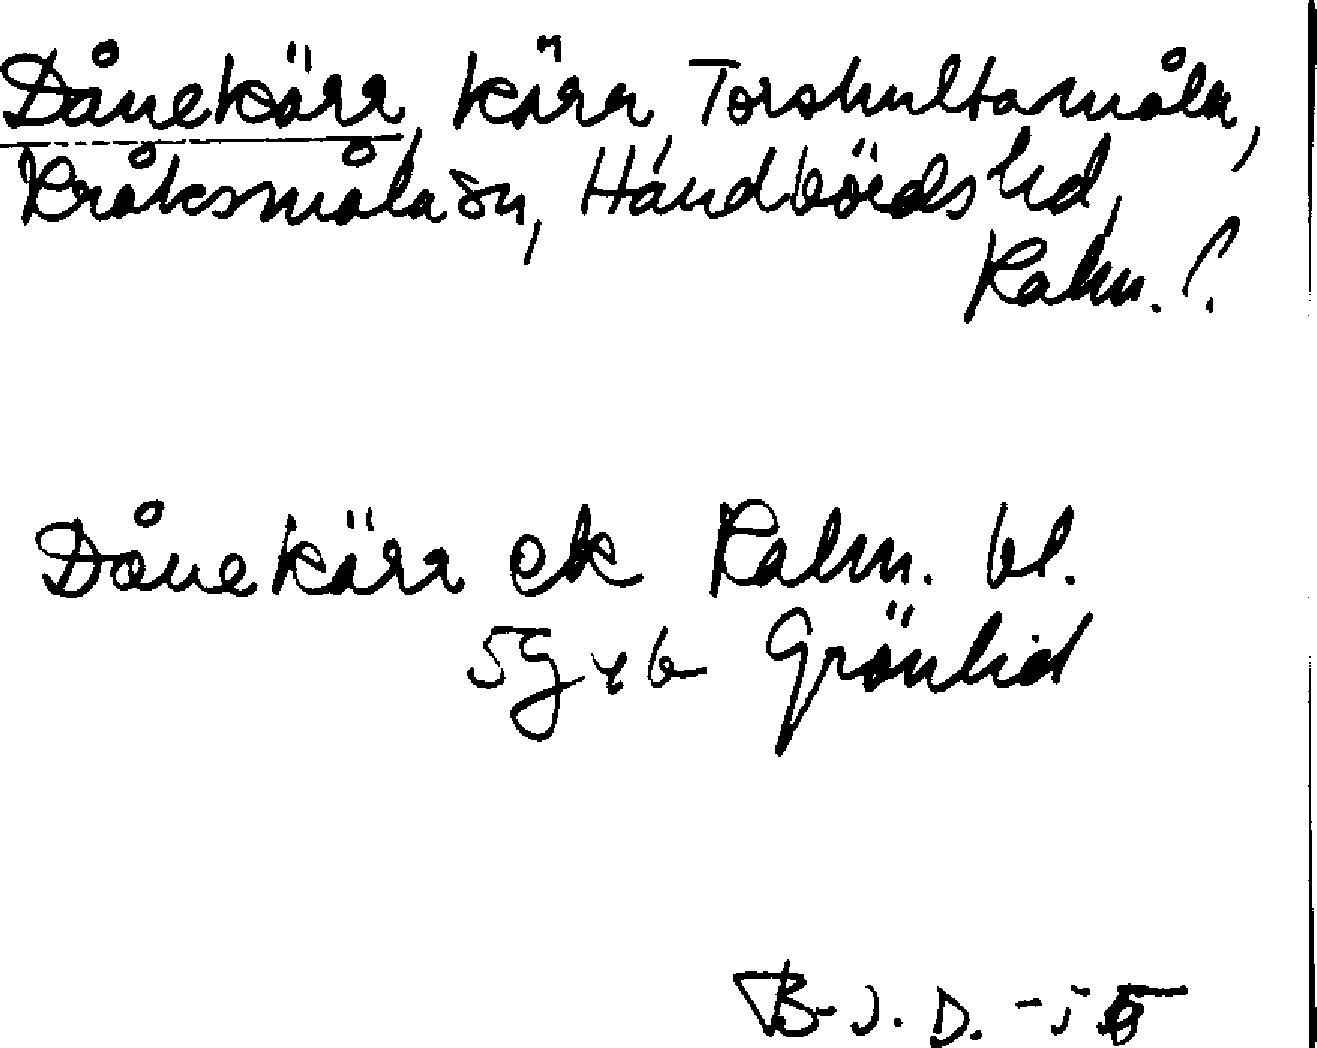 Dånekärr, kärr, Torshultamåla,
Kråksmåla sn, Handbörds hd,
Kalm. l.
Dånekärr ek Kalm. bl.
5G y b Grönlid
B-J. D. -55